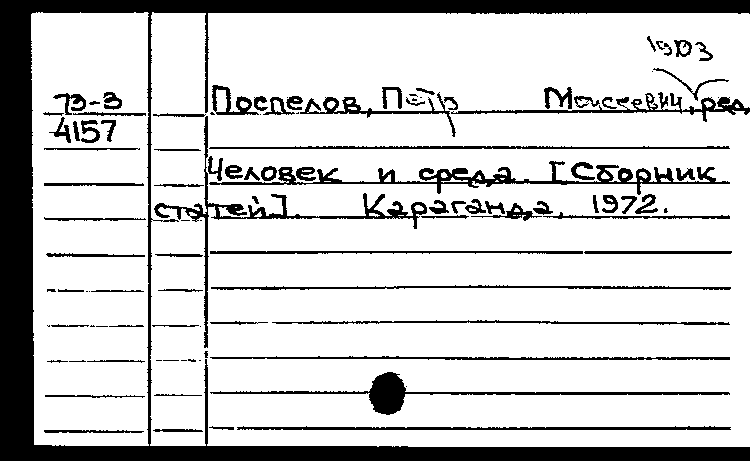 1903
73-3 Поспелов, Петр Моисеевич, ред.
4157
Человек и среда. [Сборник
статей]. Караганда, 1972.